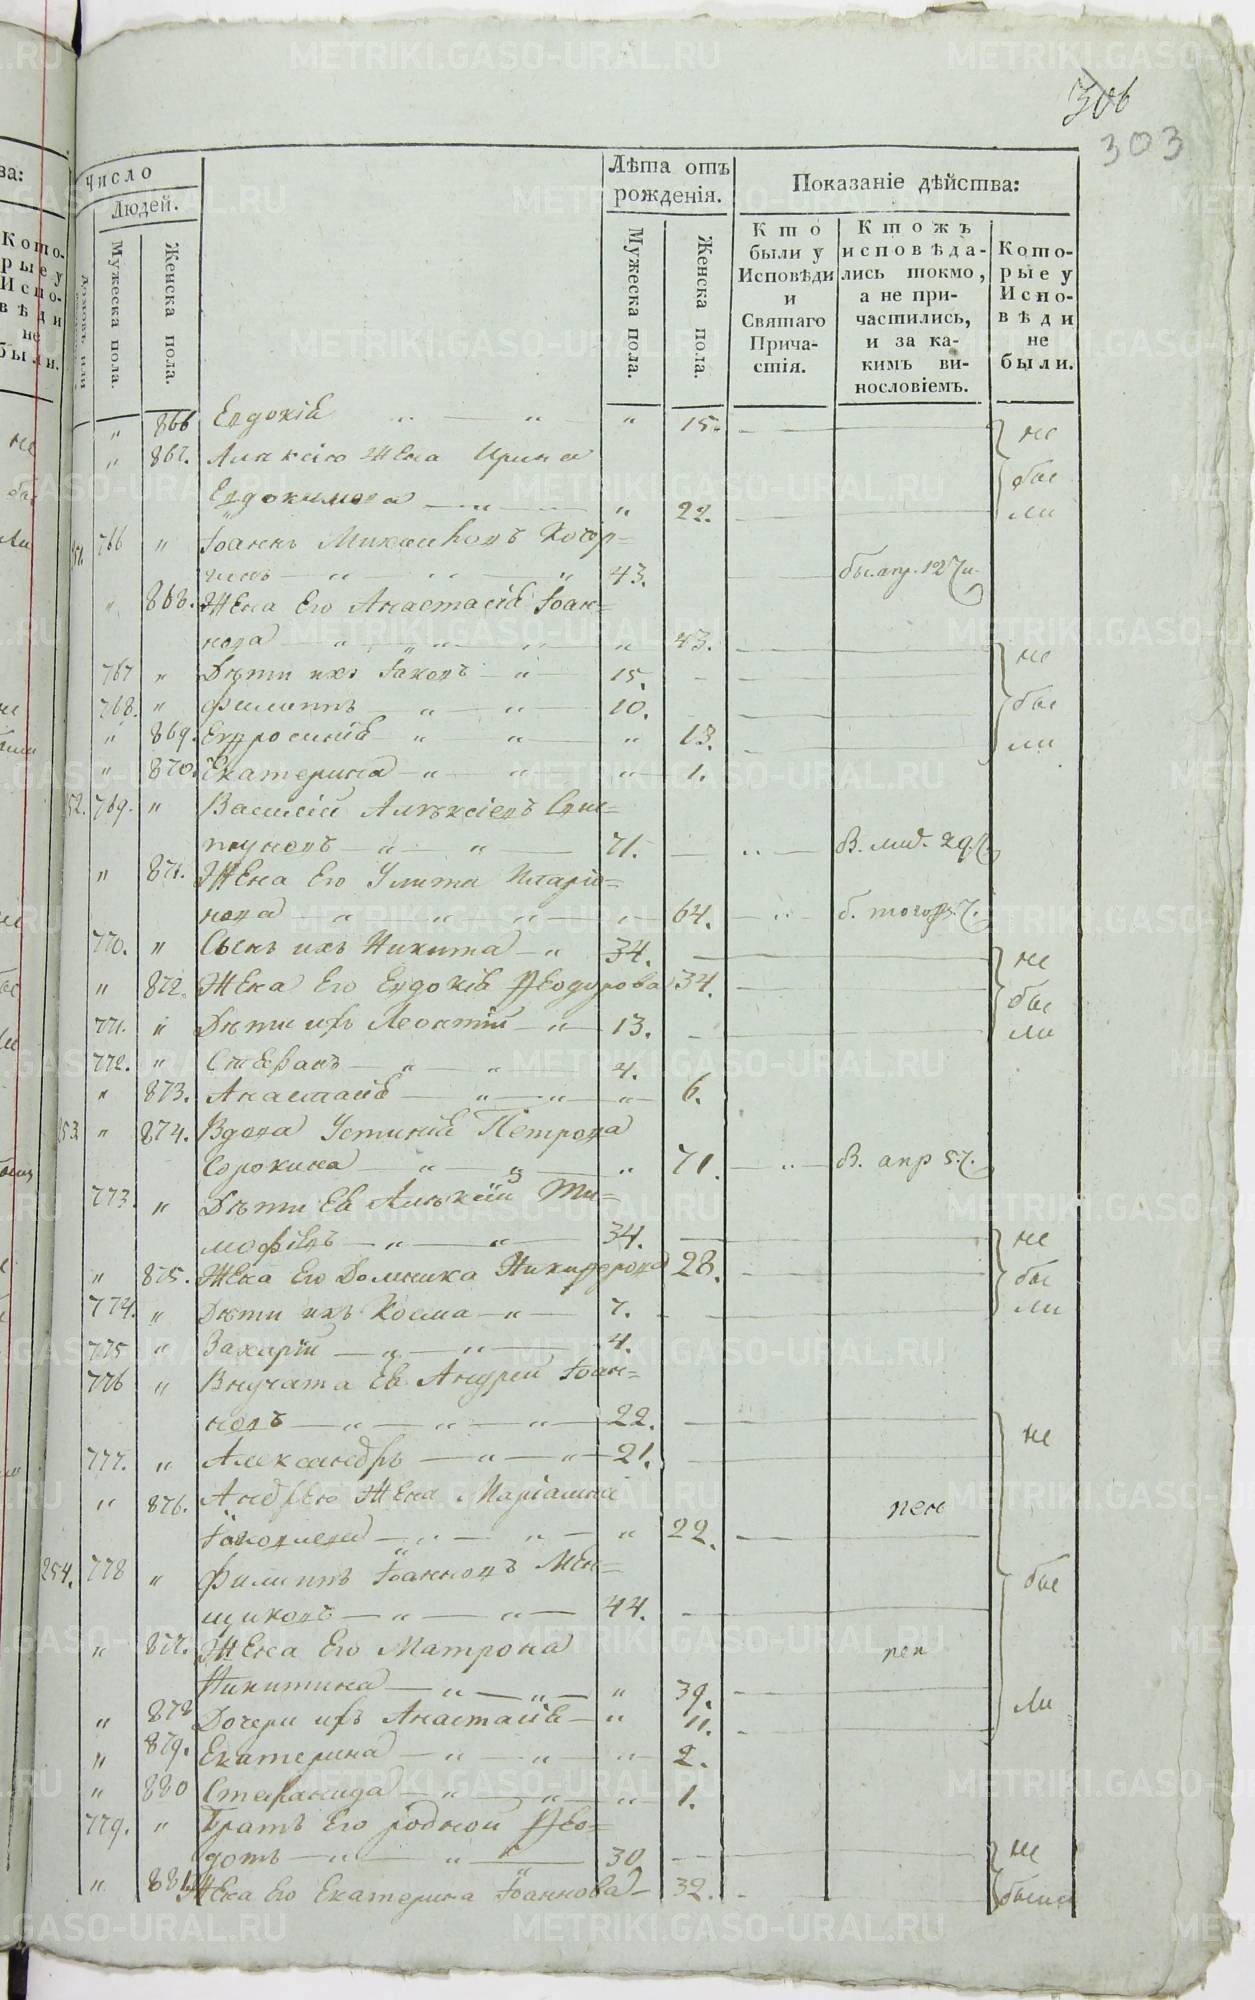 306
303
Число
Людей.
Мужеска пола.
Женска пола.
Лѣта отъ рожденія.
Мужеска пола.
Женска пола.
Показаніе дѣйства:
Кто были у Исповѣди и Святаго Причастія.
Ктожъ исповѣдались токмо, а не причастились, и за какимъ винословіемъ.
Которые у Исповѣди не были.
" 866 Евдокія " — " " 15. не
" 867. Алексію Жена Ирина бы
Евдокимова — " " 22. ли
251. 766 " Іоаннъ Михаиловъ
" " " 43. апр. 127
" 868. Жена Его Анастасія Іоан=
нова " " " " 43.
767 " Дѣти ихъ Іаковъ " 15. не
768. " Филиппъ " " 10. бы
" 869. Евфросинія " " " 13. ли
" 870. Екатерина " " " 1.
252. 769. " Василій Алексіевъ
" " 71. " 29.
" 871. Жена Его Улита Иларіо=
нова " " " " 64. "
770. " Сынъ ихъ Никита " 34. не
" 872. Жена Его Евдокія Ѳеодорова 34. бы
771. " Дѣти ихъ Леонтій " 13. ли
772. " Стефанъ " " 4.
" 873. Анастасія " " " 6.
253. " 874. Вдова Устинія Петрова
Сорокина " " " 71. " В. апр 57.
773. " Дѣти Ея Алексій Ти=
мофѣевъ " " 34. не
" 875. Жена Его Домника Никифорова 28. бы
774. " Дѣти ихъ Косма " 7. ли
775 " Захарій " " 4.
776 " Внучата Ея Андрей Іоан=
новъ " " " 22. не
777. " Александръ " " 21.
" 876. Андрею Жена Маріамна
Іаковлева " " " 22. пен
254. 778 " Филиппъ Іоанновъ Мен=
щиковъ " " 44. бы
" 877. Жена Его Матрона
Никитина " " " 39. пен
" 878 Дочери ихъ Анастасія " 11. ли
" 879. Екатерина " " " 2.
" 880 Стефанида " " " 1.
779. " Братъ Его родной Ѳео=
дотъ " " 30 не
" 881. Жена Его Екатерина Іоаннова 32. были
METRIKI.GASO-URAL.RU